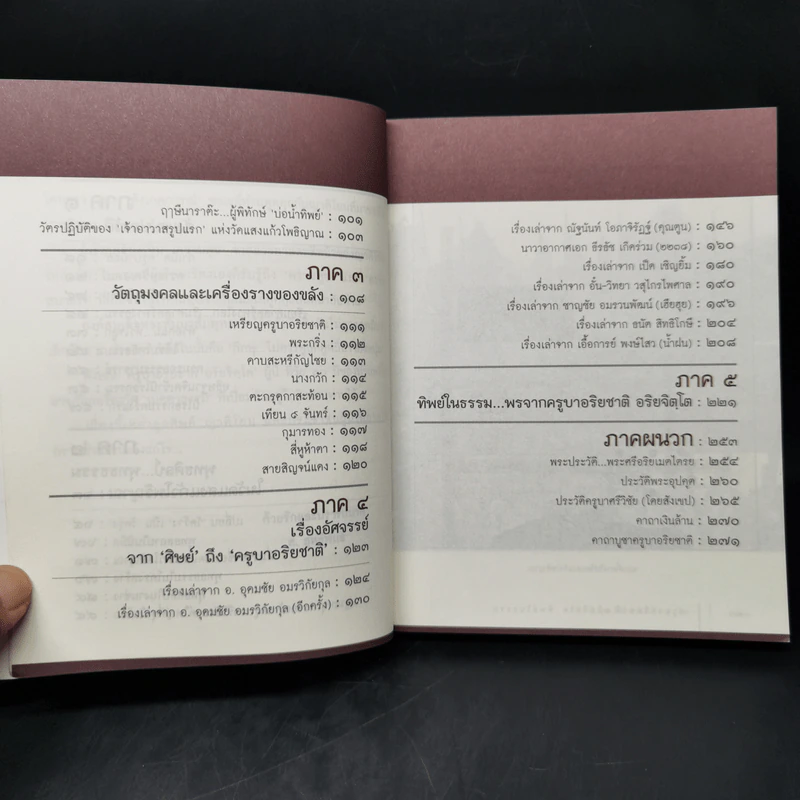 ฤๅษีนาราต๊ะ...ผู้พิทักษ์ 'บ่อน้ำทิพย์' : ๑๐๑
วัตรปฏิบัติของ 'เจ้าอาวาสรูปแรก' แห่งวัดแสงแก้วโพธิญาณ : ๑๐๓
ภาค ๓
วัตถุมงคลและเครื่องรางของขลัง : ๑๐๘
เหรียญครูบาอริยชาติ : ๑๑๑
พระกริ่ง : ๑๑๒
ดาบสะหรีกัญไชย : ๑๑๓
นางกวัก : ๑๑๔
ตะกรุดกาสะท้อน : ๑๑๕
เทียน ๘ จันทร์ : ๑๑๖
กุมารทอง : ๑๑๗
สี่หูห้าตา : ๑๑๘
สายสิญจน์แดง : ๑๒๐
ภาค ๔
เรื่องอัศจรรย์
จาก 'ศิษย์' ถึง 'ครูบาอริยชาติ' : ๑๒๓
เรื่องเล่าจาก อ. อุดมชัย อมรวิภัยกุล : ๑๒๔
เรื่องเล่าจาก อ. อุดมชัย อมรวิภัยกุล (อีกครั้ง) : ๑๓๐
เรื่องเล่าจาก ณัฐนันท์ โอภาจิรัฏฐ์ (คุณตูน) : ๑๔๖
นาวาอากาศเอก ธีรธัช เกิดร่วม (๒๒๓๘) : ๑๖๐
เรื่องเล่าจาก เป็ด เชิญยิ้ม : ๑๘๐
เรื่องเล่าจาก อั๋น-วิทยา วสุไกรไพศาล : ๑๙๐
เรื่องเล่าจาก ชาญชัย อมรวนพัฒน์ (เฮียฮุย) : ๑๙๖
เรื่องเล่าจาก ธนัด สิทธิโกษี : ๒๐๔
เรื่องเล่าจาก เอื้อการย์ พงษ์ไสว (น้ำฝน) : ๒๐๘
ภาค ๕
ทิพย์ในธรรม...พรจากครูบาอริยชาติ อริยจิตฺโต : ๒๒๑
ภาคผนวก : ๒๕๓
พระประวัติ...พระศรีอริยเมตไตรย : ๒๕๔
ประวัติพระอุปคุต : ๒๖๐
ประวัติครูบาศรีวิชัย (โดยสังเขป) : ๒๖๕
คาถาเงินล้าน : ๒๗๐
คาถาบูชาครูบาอริยชาติ : ๒๗๑